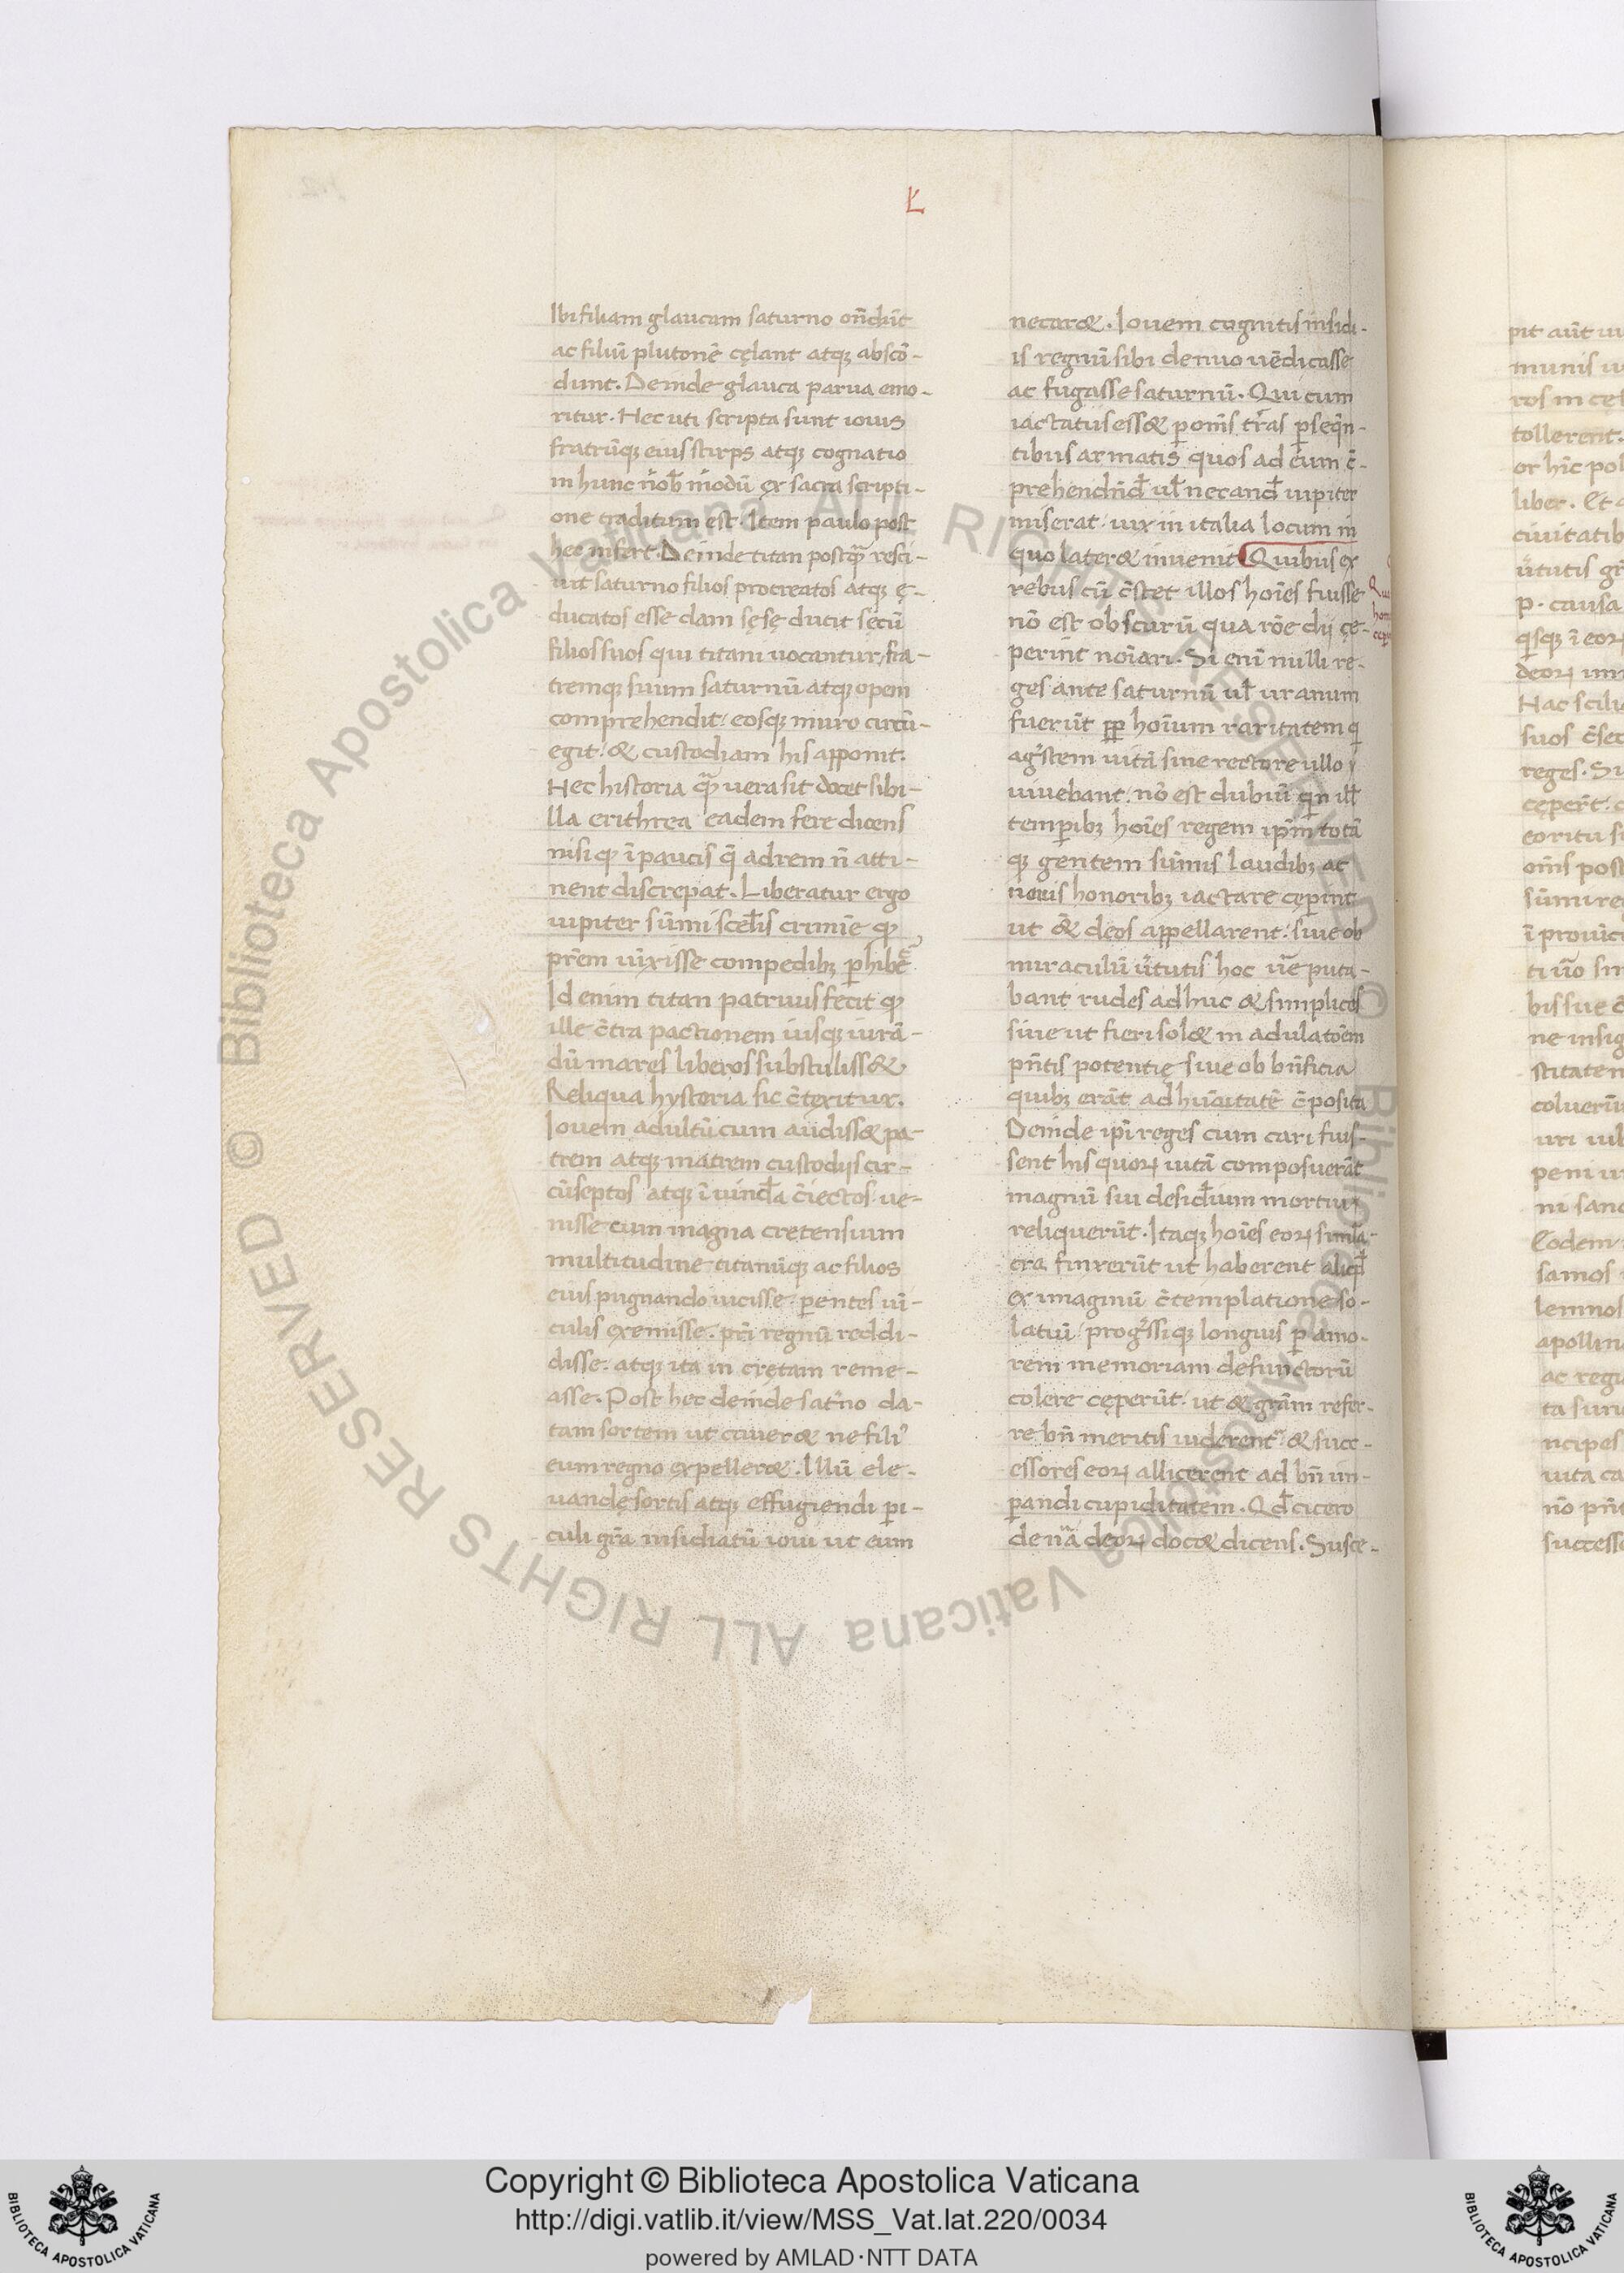 Ł
Ibi filiam glaucam saturno on̄dūt
ac filiū plutonē cęlant atqꝫ abscō-
dunt. Deinde glauca parua emo-
ritur. Hec uti scripta sunt iouis
fratrūqꝫ eius stirps atqꝫ cognatio
in hunc nob̄ modū ex sacra scripti-
one traditum est. Item paulo post
hec infert. Deinde titan postqꝫ̄ resci-
uit saturno filios procreatos atqꝫ ę-
ducatos esse clam sęsę ducit secū
filios suos qui titani uocantur, fra-
tremqꝫ suum saturnū atqꝫ opem
comprehendit, eosqꝫ muro circū-
egit. & custodiam his apponit.
Hec historia qꝫ̄ uera sit docet sibi-
lla erithrea eadem fere dicens
nisi ꝙ ī paucis q̄ ad rem n̄ atti-
nent discrepat. Liberatur ergo
iupiter sūmi scel̄is crimīe ꝙ
prēm uīxisse compedibꝫ ꝑhibet̄
Id enim titan patruus fecit ꝙ
ille c̄tra pactionem iusqꝫ iurā-
dū mares liberos substuliss&
Reliqua hystoria sic c̄texitur.
Iouem adultū cum audiss& pa-
trem atqꝫ matrem custodijs cir-
cūseptos atqꝫ ī uincl̄a c̄iectos ue-
nisse cum magna cretensium
multitudine titanūqꝫ ac filios
eius pugnando uicisse ꝑentes uī-
culis exemisse. pr̄i regnū reddi-
disse. atqꝫ ita in crętam reme-
asse. Post hec deinde sat'no da-
tam sortem ut cauer& ne fili'
eum regno expeller&. Illū ele-
uandę sortis atqꝫ effugiendi ꝑi-
culi grā insidiatū ioui ut eum
necar&. Iouem cognitis insidi-
is regnū sibi denuo uēdicasse
ac fugasse saturnū. Qui cum
iactatus ess& ꝑ om̄s tr̄as ꝑseqn̄-
tibus armatis quos ad eum c̄-
prehendn̄d̄ ul̄ necand̄ iupiter
miserat. uix in italia locum in
quo later& inuenit Quibus ex
rebus cū c̄stet illos hoīes fuisse
nō est obscurū qua rōe dij cę-
perint noīari. Si enī nulli re-
ges ante saturnū ul̄ uranum
fuerūt ꝓꝑ hoīum raritatem q
agstem uitā sine rectore ullo
uiuebant. nō est dubiū qin ill̄
temꝑibꝫ hoīes regem ipm̄ totā
qꝫ gentem sūmis laudibꝫ ac
nouis honoribꝫ iactare cęꝑint
ut & deos appellarent. siue ob
miraculū uꝰtutis hoc ue᷑ puta-
bant rudes adhuc & simplices
siue ut fieri sol& in adulatōem
pn̄tis potentię siue ob bn̄ficia
quibꝫ erāt ad hūanitatē c̄posita
Deinde ipi̅ reges cum cari fuis-
sent his quoꝝ uitā composuerāt
magnū sui desid̄ium mortui
reliquerūt. Itaqꝫ hoīes eoꝝ simula-
cra finxerūt ut haberent aliqd̄
ex imaginū c̄templatione so-
latiū, progssiqꝫ longius ꝑ amo-
rem memoriam defunctorū
colere cęperūt. ut & grām refer-
re bn̄ meritis uiderent & succ-
essores eoꝝ allicerent ad bn̄ im-
ꝑandi cupiditatem. Qd̄ cicero
de nā deoꝝ doc& dicens. Susce-
Copyright © Biblioteca Apostolica Vaticana
http://digi.vatlib.it/view/MSS_Vat.lat.220/0034
powered by AMLAD·NTT DATA